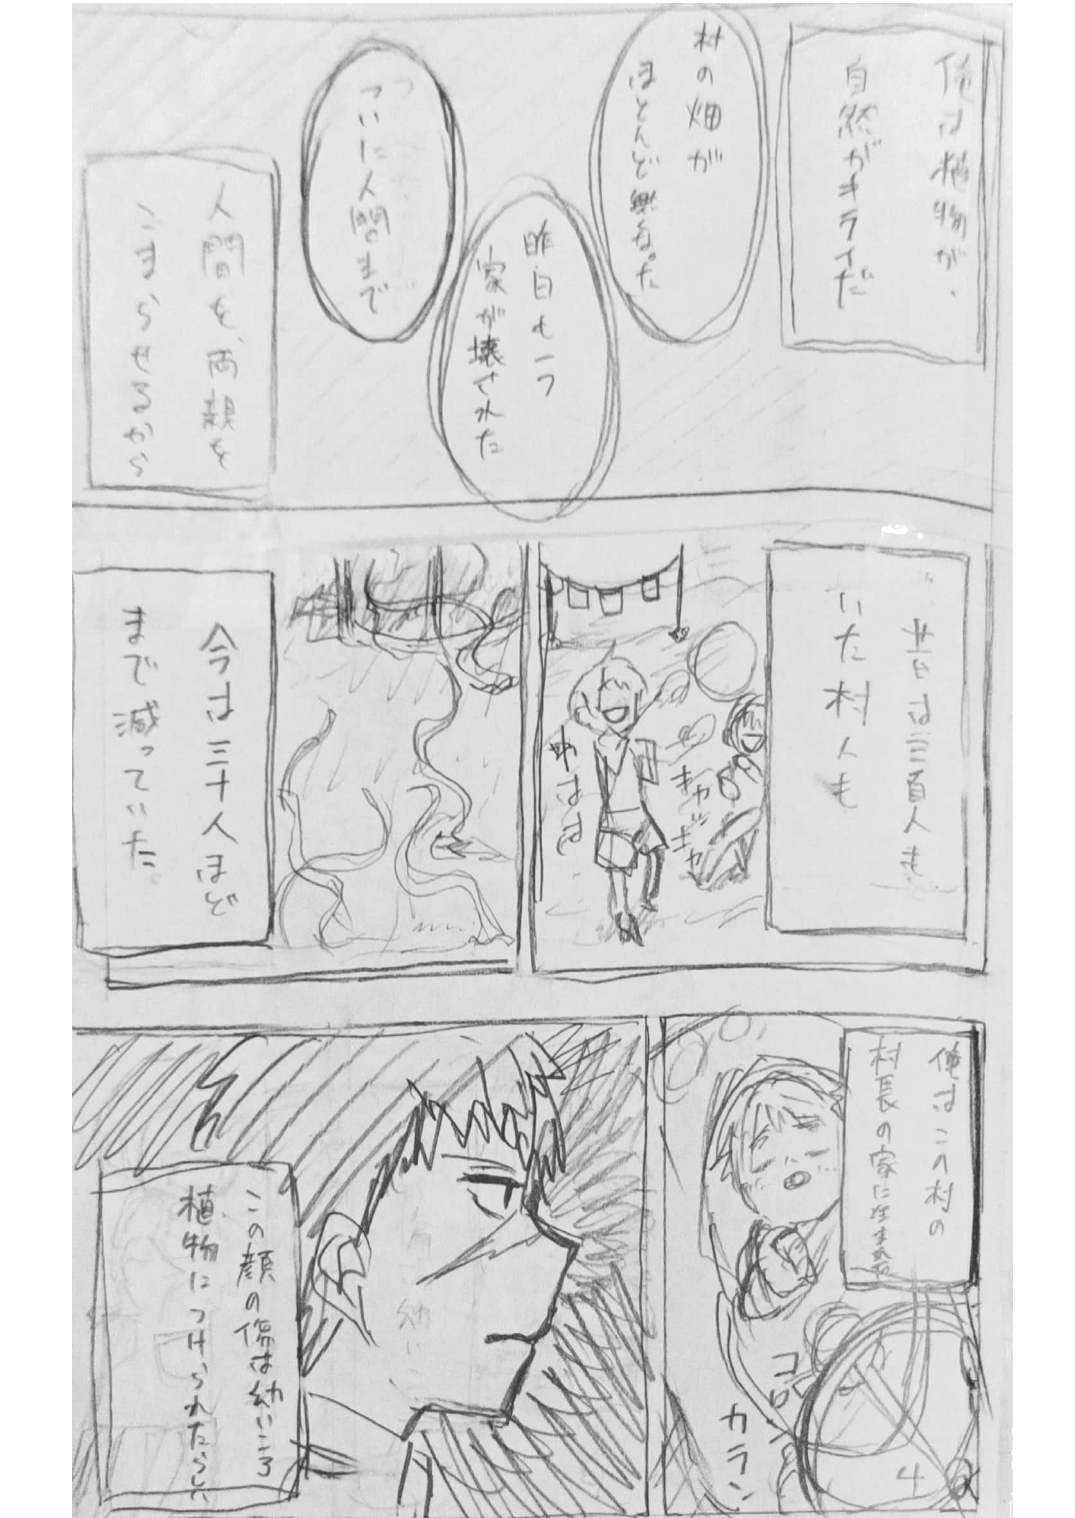 俺は植物が、
自然がキライだ
村の畑が
ほとんど無なった
昨日も一つ
家が壊された
ついに人間まで
人間を、両親を
こまらせるから
昔は三百人も
いた村人も
キャッキャ
わはは
今は三十人ほど
まで減っていた。
俺はこの村の
村長の家に生まれた
コロ
カラン
4
この顔の傷は幼いころ
植物につけられたらしい